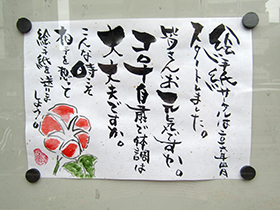 絵手紙サークル
スタートしました。
皆さんお元気ですか。
コロナ自粛で体調は
大丈夫ですか。
こんな時こそ
相手を想って
絵手紙を送りま
しょう。